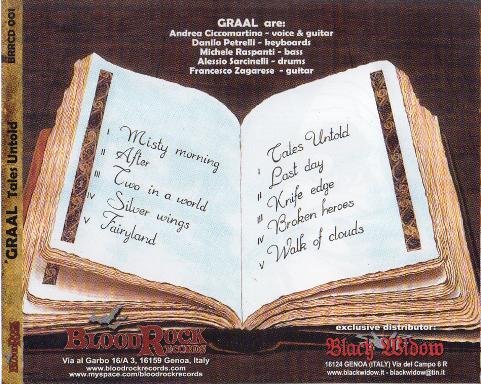 BRRCD 001
GRAAL Tales Untold
BLOODROCK
GRAAL are:
Andrea Ciccomartino - voice & guitar
Danilo Petrelli - keyboards
Michele Raspanti - bass
Alessio Sarcinelli - drums
Francesco Zagarese - guitar
I Misty morning
II After
III Two in a world
IV Silver wings
V Fairyland
I Tales Untold
II Last day
III Knife edge
IV Broken heroes
V Walk of clouds
BLOODROCK
RECORDS
Via al Garbo 16/A 3, 16159 Genoa, Italy
www.bloodrockrecords.com
www.myspace.com/bloodrockrecords
exclusive distributor:
Black Widow
16124 GENOA (ITALY) Via del Campo 6 R
www.blackwidow.it - blackwidow@tin.it